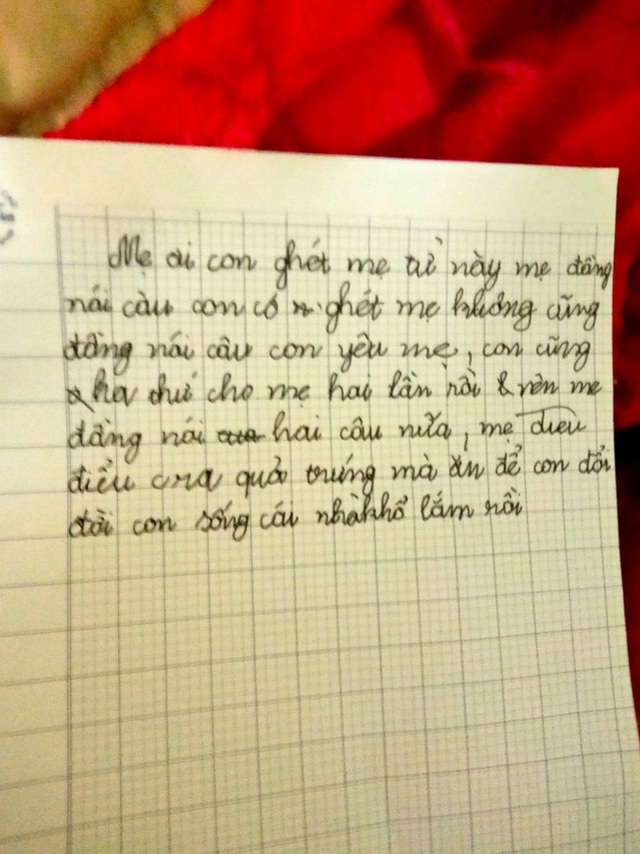 Mẹ ơi con ghét mẹ từ này mẹ đằng
nói câu con có ghét mẹ không cũng
đằng nói câu con yêu mẹ, con cũng
tha thứ cho mẹ hai lần rồi & nên mẹ
đằng nói hai câu nữa, mẹ
điểu cra quả trứng mà ăn để con đổi
đời con sống cái nhà khổ lắm rồi